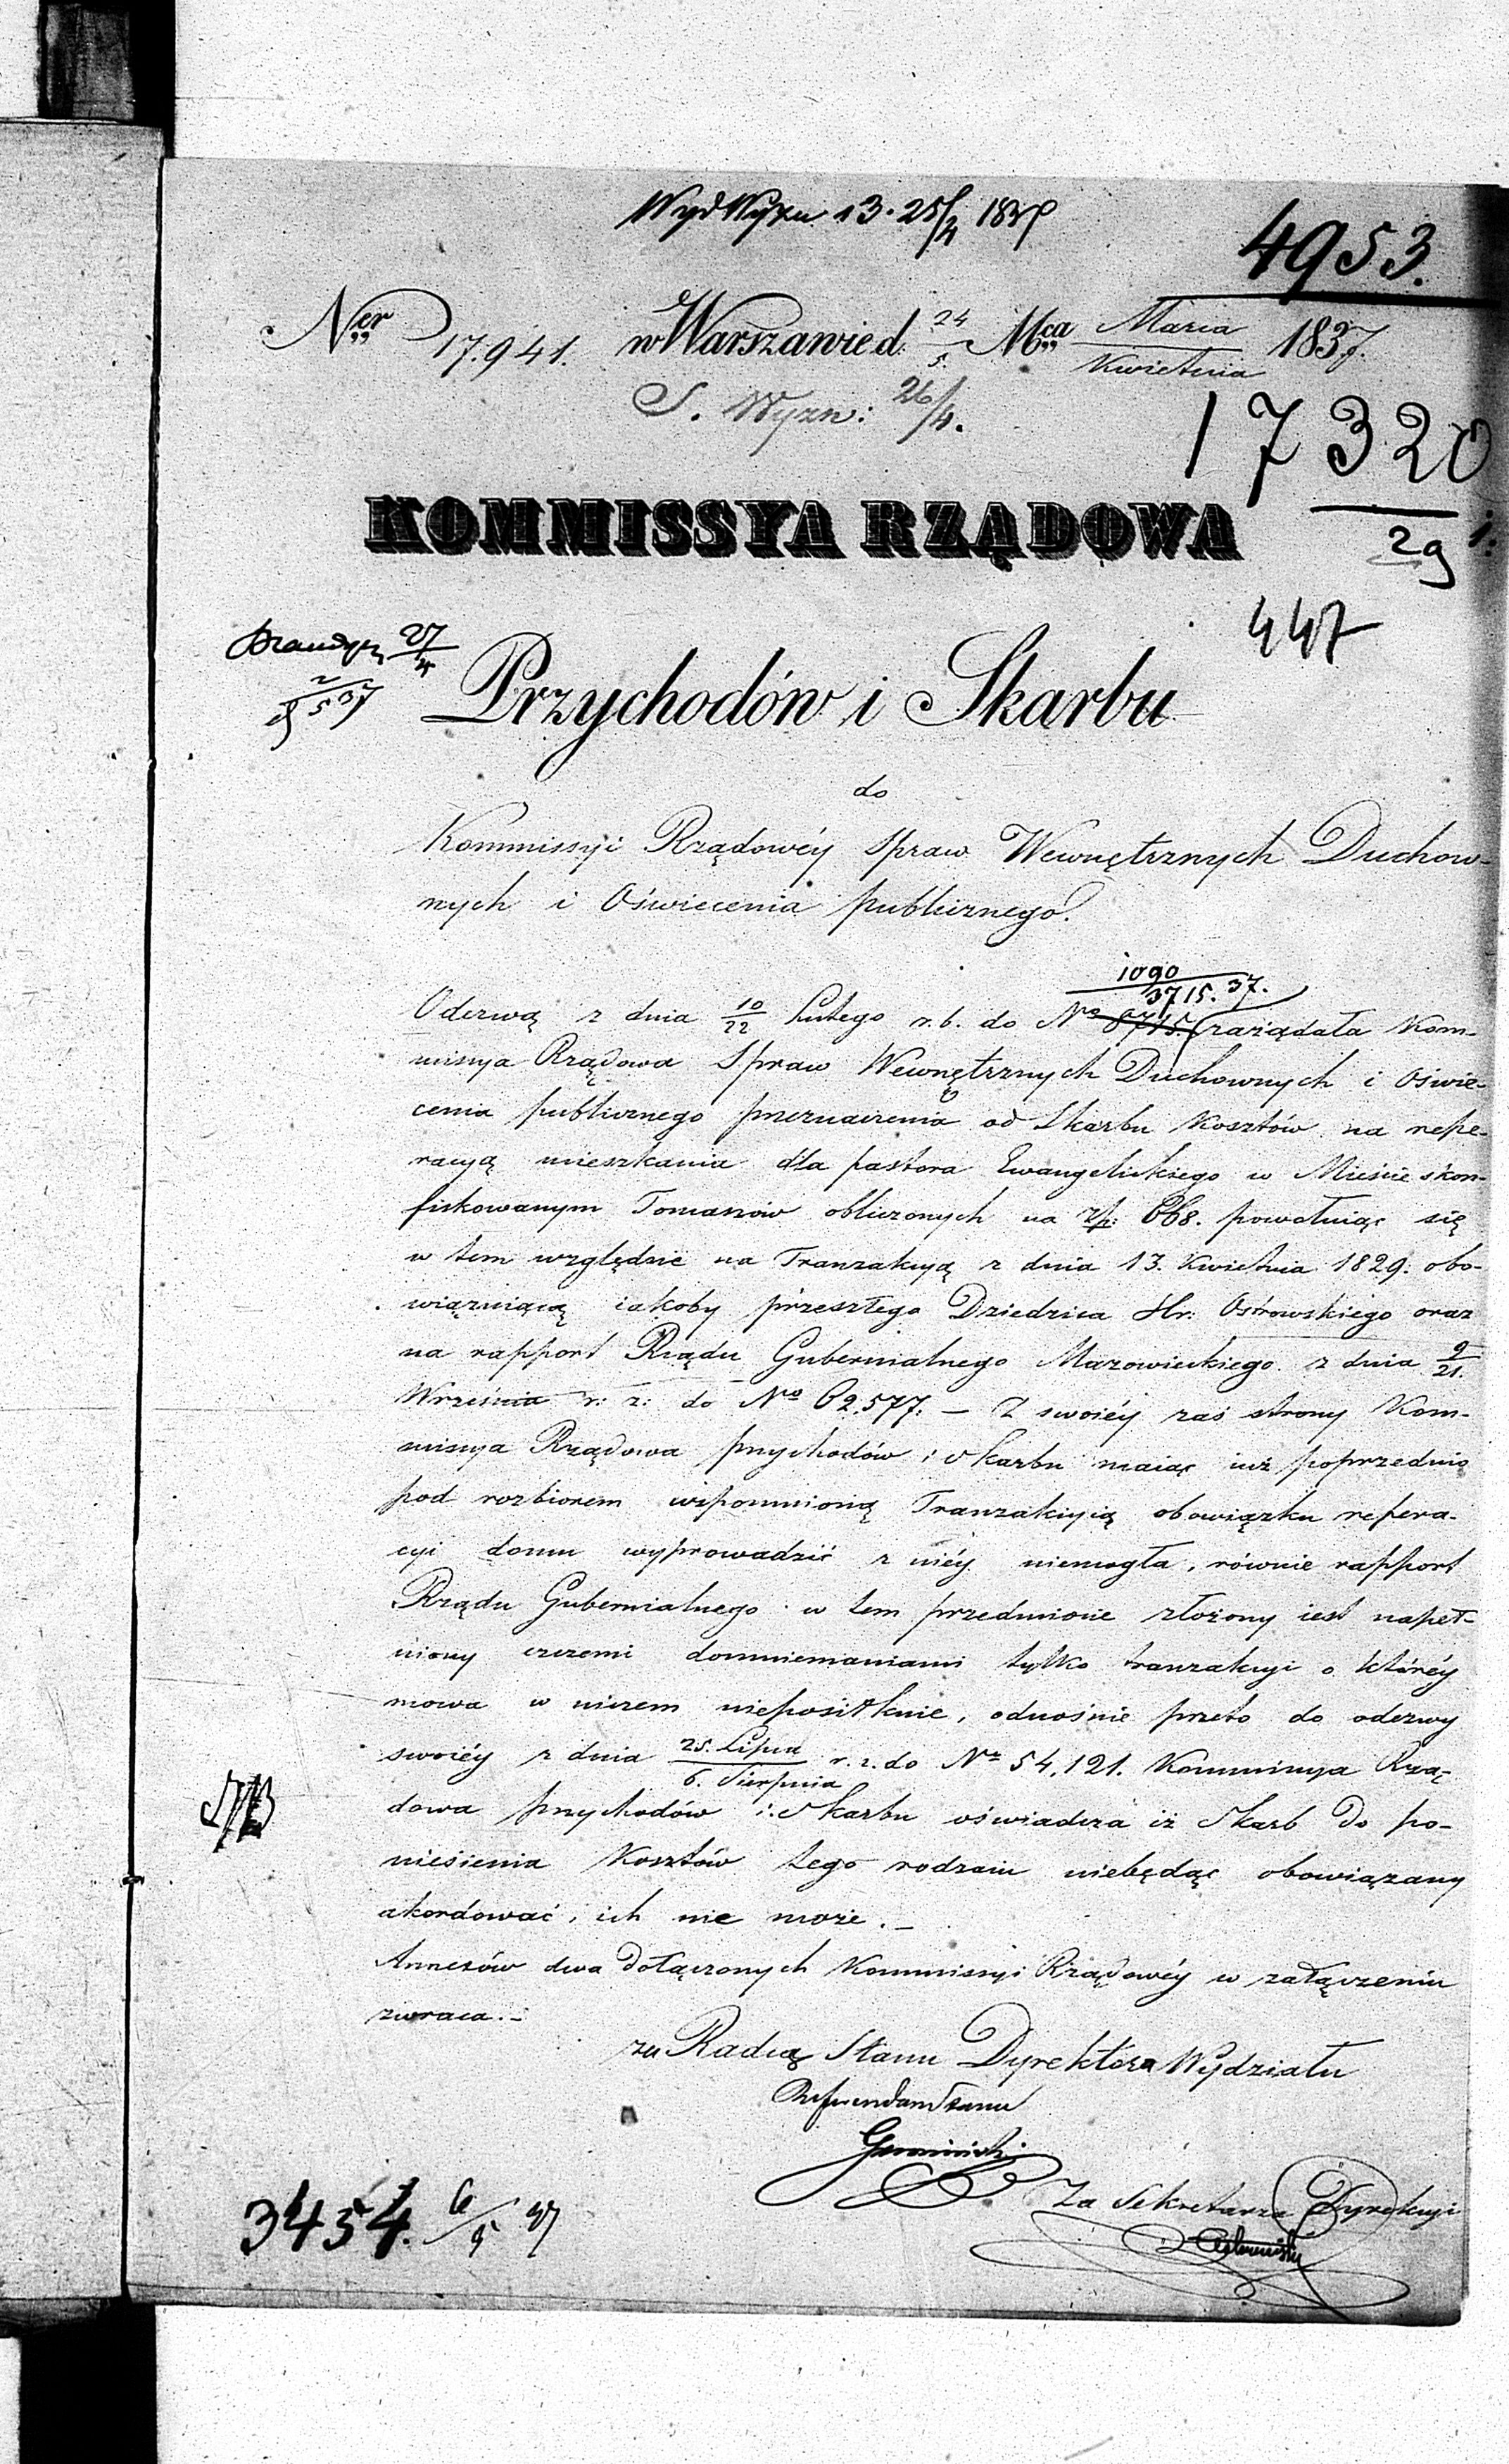 Wyd Wyzn 13. 25/4 1837
4953.
Ner 17.941. w Warszawie d. 24/5. Mca Marca/Kwietnia 1837.
S. Wyzn: 26/4.
17320
29
447
KOMMISSYA RZĄDOWA
27/4
2/5 37
Przychodów i Skarbu
do
Kommissyi Rządowéy Spraw Wewnętrznych Duchow-
nych i Oświecenia publicznego.
1090
3715. 37.
Odezwą z dnia 10/22 Lutego r.b. do No 8715. zażądała Kom-
missya Rządowa Spraw Wewnętrznych Duchownych i Oświe-
cenia publicznego przeznaczenia od Skarbu Kosztów na repe-
racyą mieszkania dla pastora Ewangelickiego w Mieście skon-
fiskowanym Tomaszów obliczonych na złp: 668. powołuiąc się
w tem względzie na Tranzakcyą z dnia 13. Kwietnia 1829. obo-
wiązuiącą iakoby przeszłego Dziedzica Hr: Ostrowskiego oraz
na rapport Rządu Gubernialnego Mazowieckiego z dnia 9/21.
Września r: z: do No 62.577. – Z swoiéy zaś strony Kom-
missya Rządowa przychodów i Skarbu maiąc iuż poprzednio
pod rozbiorem wspomnioną Tranzakcyią obowiązku repera-
cyi domu wyprowadzić z niéy niemogła, równie rapport
Rządu Gubernialnego w tem przedmiocie złożony iest napeł-
niony czczemi domniemaniami tylko tranzakcyi o któréy
mowa w niczem nieposiłkuie, odnośnie przeto do odezwy
swoiéy z dnia 25. Lipca/6. Sierpnia r. z. do No 54,121. Kommissya Rzą-
dowa przychodów i Skarbu oświadcza iż Skarb do po-
NB
niesienia Kosztów tego rodzaiu niebędąc obowiązany
akordować, ich nie może. –
Annexów dwa dołączonych Kommissyi Rządowéy w załączeniu
zwraca. –
za Radcę Stanu Dyrektora Wydziału
Referendarz Stanu
Za Sekretarza Dyrekcyi
3454. 6/5 37